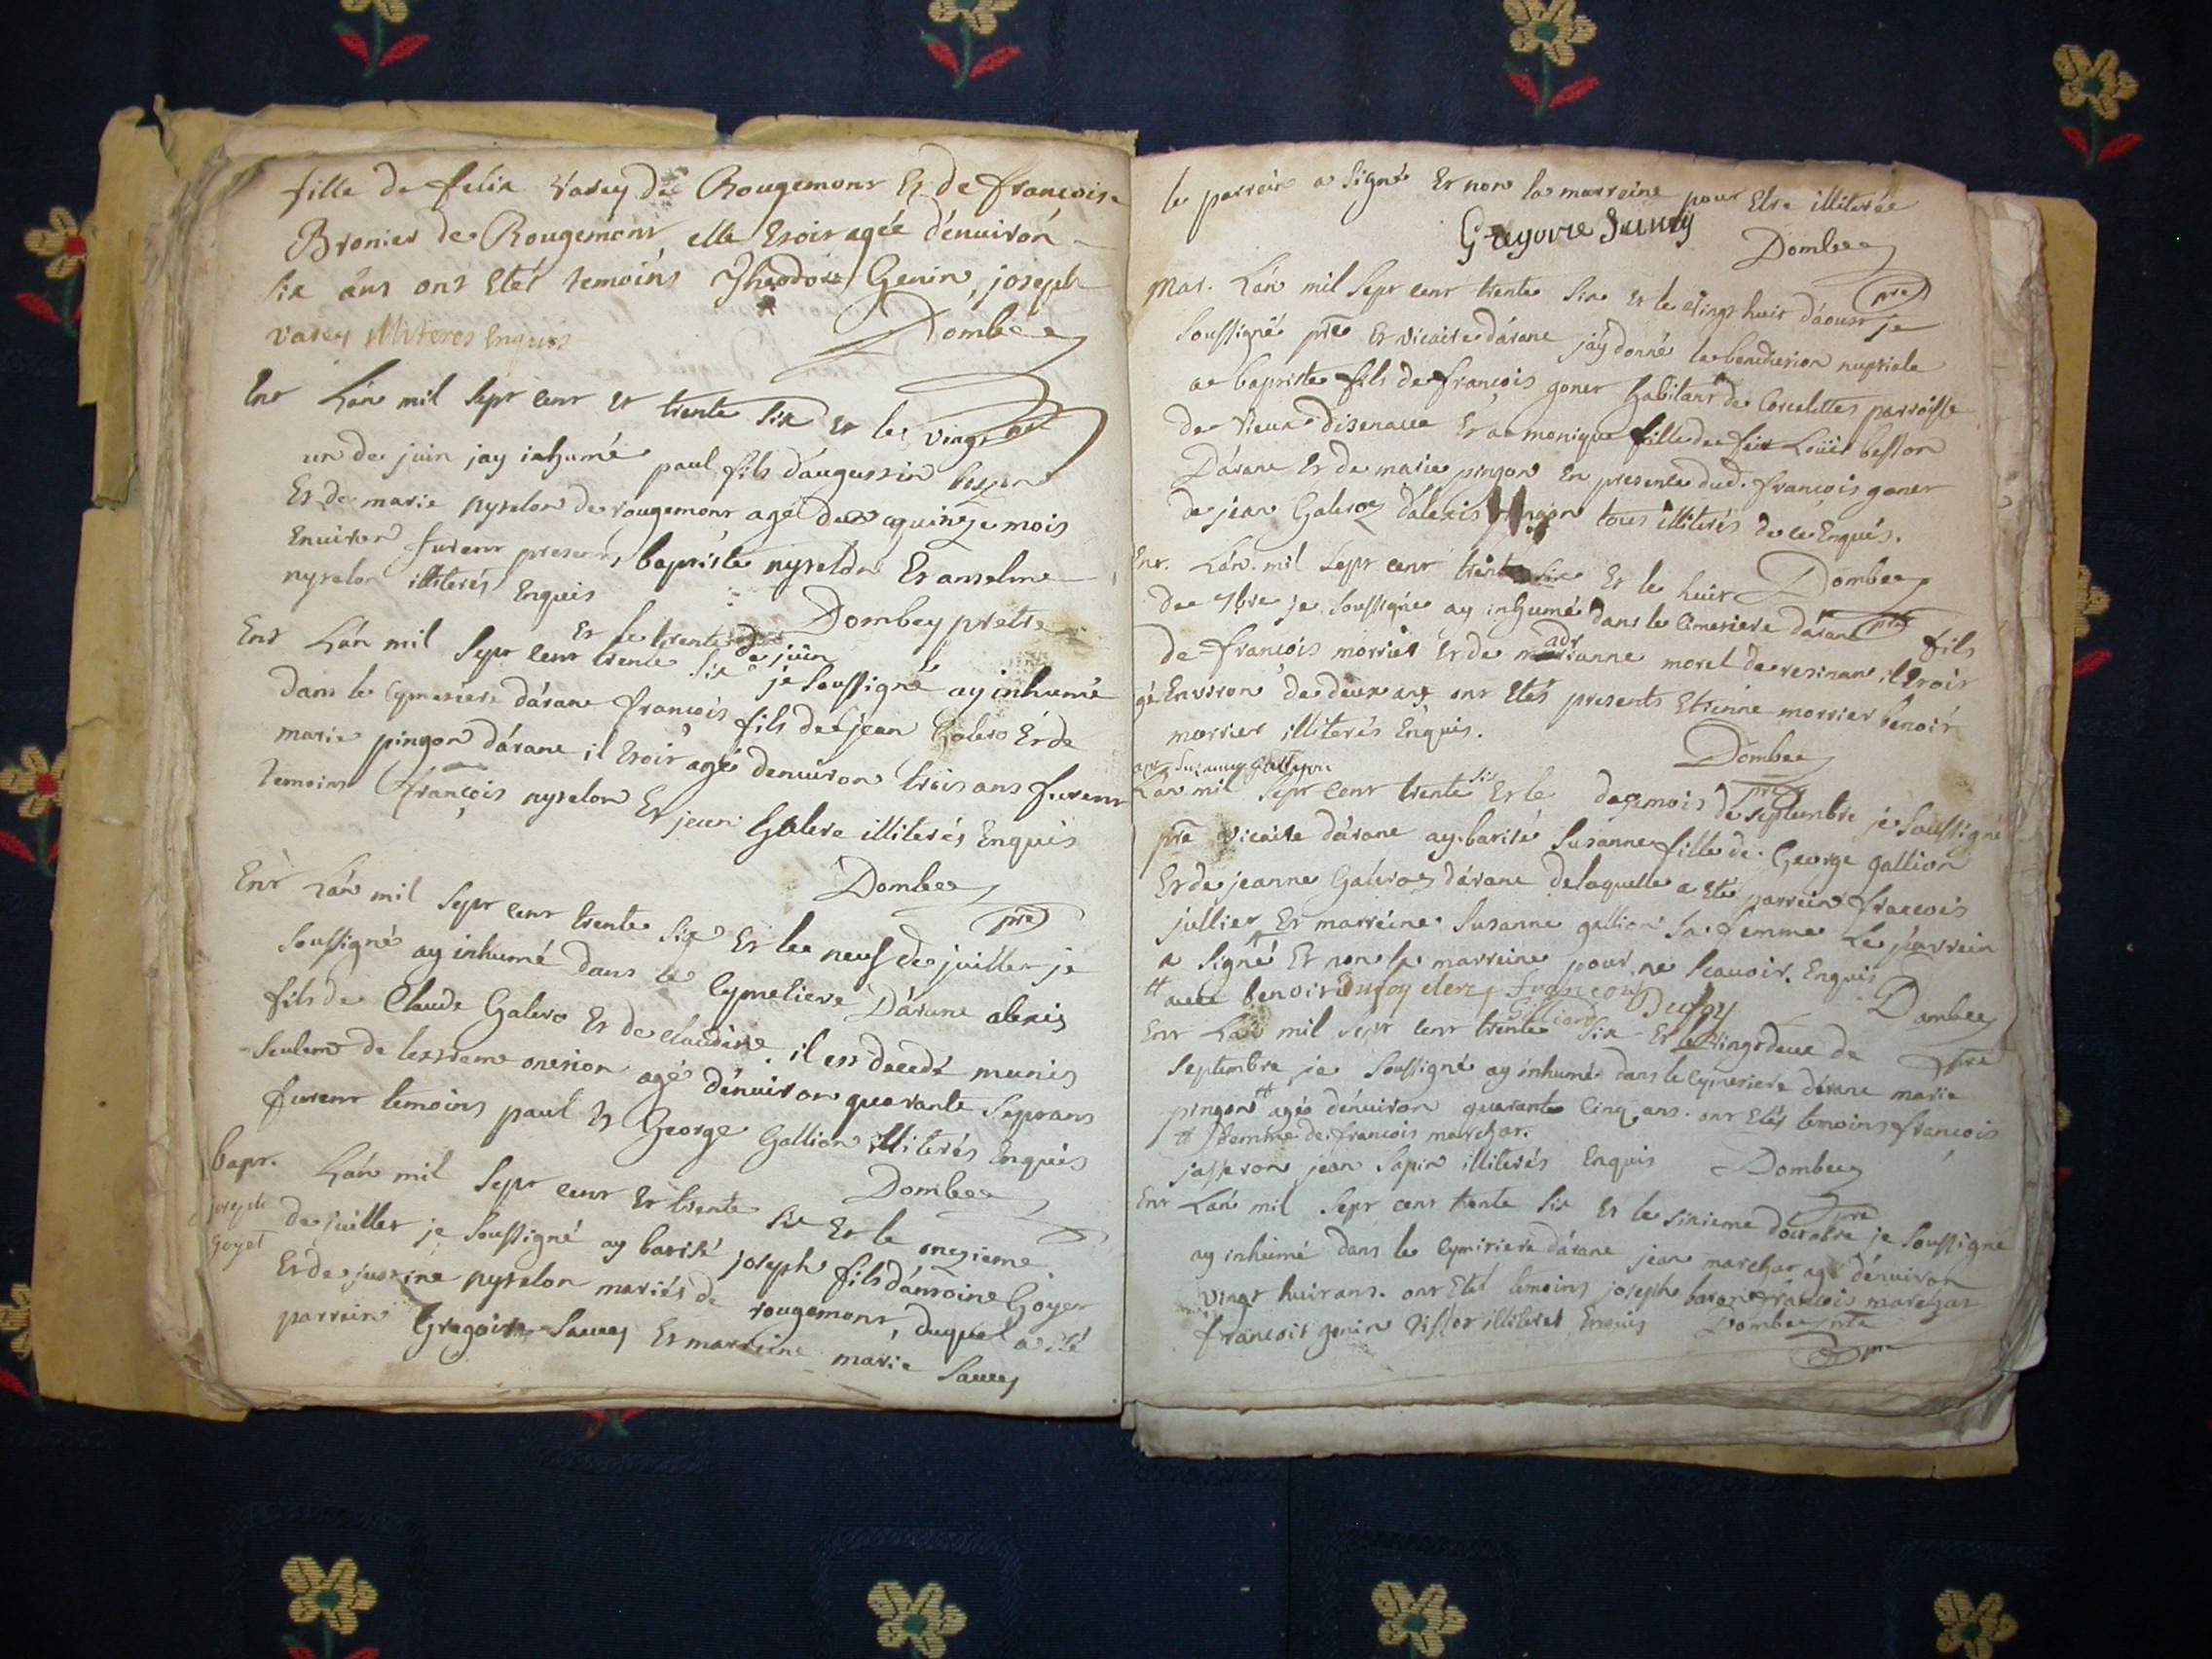 fille de felix varey de Rougemont Et de françoise
Bronier de Rougemont, elle Etoit agée d'énuirón
Six ans ont Etéz temoins Theodore Genin, joseph
varey illiteres Enquis
Dombey
Ent L'án mil Sept cent et trente Six et le vingt
pre
un de juin jay inhumé paul fils d'augustin
Et de marie nyvelon de rougemont agé de quinze mois
Enuiron furent presents baptiste nyvelon Et anselme
nyvelon illiterés Enquis
Dombey pretre
Et le trente de juin
Ent L'án mil Sept cent trente Six je Soussigné ay inhumé
dans le Cymetiere d'árane françois fils de jean Galero Et de
marie pingon d'árane il Etoit agé denuiron trois ans furent
temoins françois nyvelon Et jean Galero illiterés Enquis
Dombey
pre
Ent L'án mil Sept cent trente Six Et le neuf de juillet je
Soussigné ay inhumé dans le Cymetiere D'árane alexis
fils de Claude Galero Et de claudine il est decedé munis
Seulemt de lextreme onction agé d'énuiron quarante Sept ans
furent temoins paul Et George Gallion illiterés Enquis
Dombey
bapt.
joseph
Goyet
L'án mil Sept cent Et trente Six Et le onzieme
de juillet je Soussigné ay batisé joseph fils d'ántoine Goyet
Et de justine nyvelon mariés de rougemont, duquel a été
parrein Gregoire Savey Et marreine marie Savey
le parrein a Signé Et non la marreine pour Etre illiterée
Gregoire Savey
Dombey
pre
Mar. L'án mil Sept cent trente Six Et le vingt huit d'áoust je
Soussigné pre Et vicaire d'árane j'áy donné la benediction nuptiale
a baptiste fils de françois gonet habitant de Corcelettes parroisse
de Vieux disenaue Et a monique fille de feu Loüis besson
D'árane Et de marie pingon En presence dud. françois gonet
de jean Galero d'alexis pingon tous illiterés de ce Enquis.
Dombey
pre
Ent. L'án mil Sept cent trente Six Et le huit
de 7bre je Soussigné ay inhumé dans le Cimetiere d'árane fils
de françois morrier Et de marianne morel de resinan il Etoit
agé Environ de deux ans ont Etés presents Etienne morrier benoit
morrier illiterés Enquis.
Dombey
pre
Suzanne Gallion
L'án mil Sept cent trente six Et le de mois de Septembre je Soussigné
pre vicaire d'árane ay batisé Susanne fille de George gallion
Et de jeanne Galero d'árane de laquelle a été parrein françois
jullier Et marreine Susanne gallion Sa femme Le parrein
a Signé # Et non la marreine pour ne Scauoir. Enquis
# avec benoit Dufoy clerc françois Dufoy
Dombey
pre
Ent L'án mil Sept cent trente Six Et le vingt deux de
Septembre je Soussigné ay inhumé dans le Cymetiere d'árane marie
pingon # agée d'énuiron quarante Cinq ans. ont Etéz temoins françois
# femme de françois marchat.
jasseron jean Sapin illiterés Enquis
Dombey
pre
Ent L'án mil Sept cent trente Six Et le Sixieme d'octobre je Soussigné
ay inhumé dans le Cymitiere d'árane jean marchat agé d'énuiron
vingt huit ans. ont Etéz temoins joseph baron françois marchat
françois genin illiteres Enquis
Dombey pre